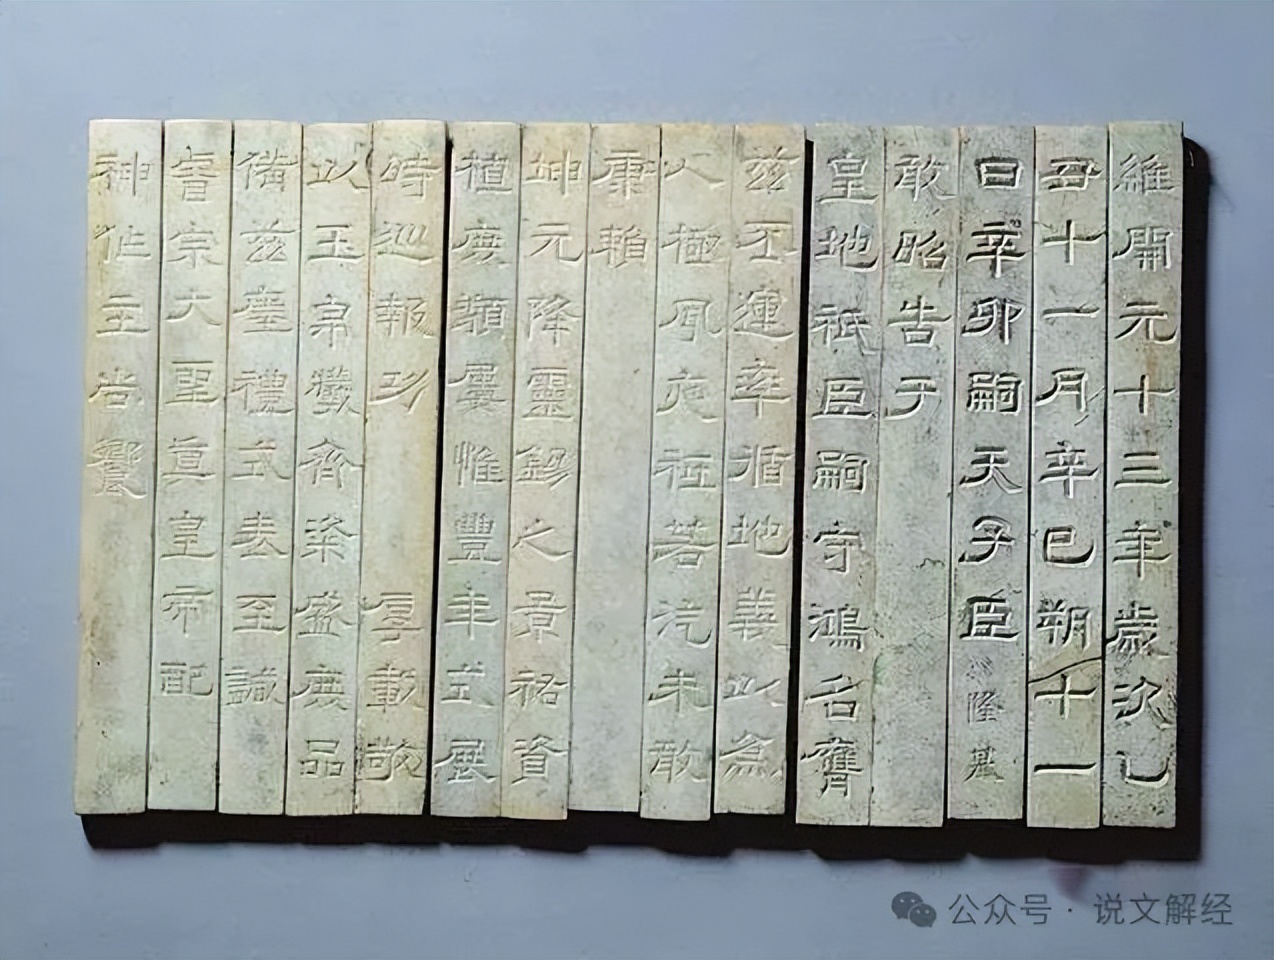 維開元十三年歲次乙
丑十一月辛巳朔十一
日辛卯嗣天子臣隆基
敢昭告于
皇地祇臣嗣守鴻名膺
茲丕運率循地義以為
人極夙夜祗若汔未敢
康賴
坤元降靈錫之景祐資
植庶類屢惟豐年式展
時巡報功 厚載敬
以玉帛犧齊粢盛庶品
備茲瘞禮式表至誠
睿宗大聖真皇帝配
神作主尚饗
公众号 · 说文解经